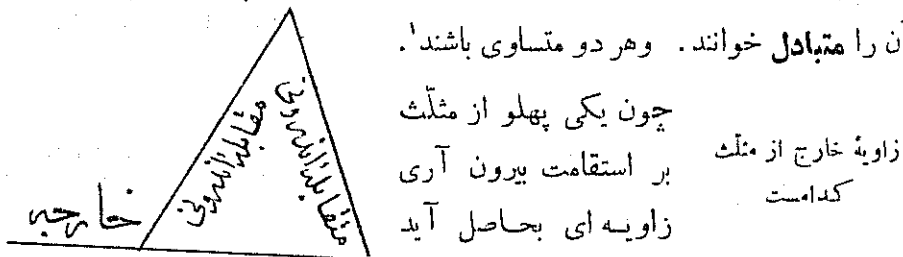 آن را متبادل خوانند. وهر دو متساوی باشند¹.
زاویهٔ خارج از مثلّث
کدامست
چون یکی پهلو از مثلّث
بر استقامت بیرون آری
زاویه ای بحاصل آید
مقابلهٔ اندرونی
مقابلهٔ اندرونی
خارجه